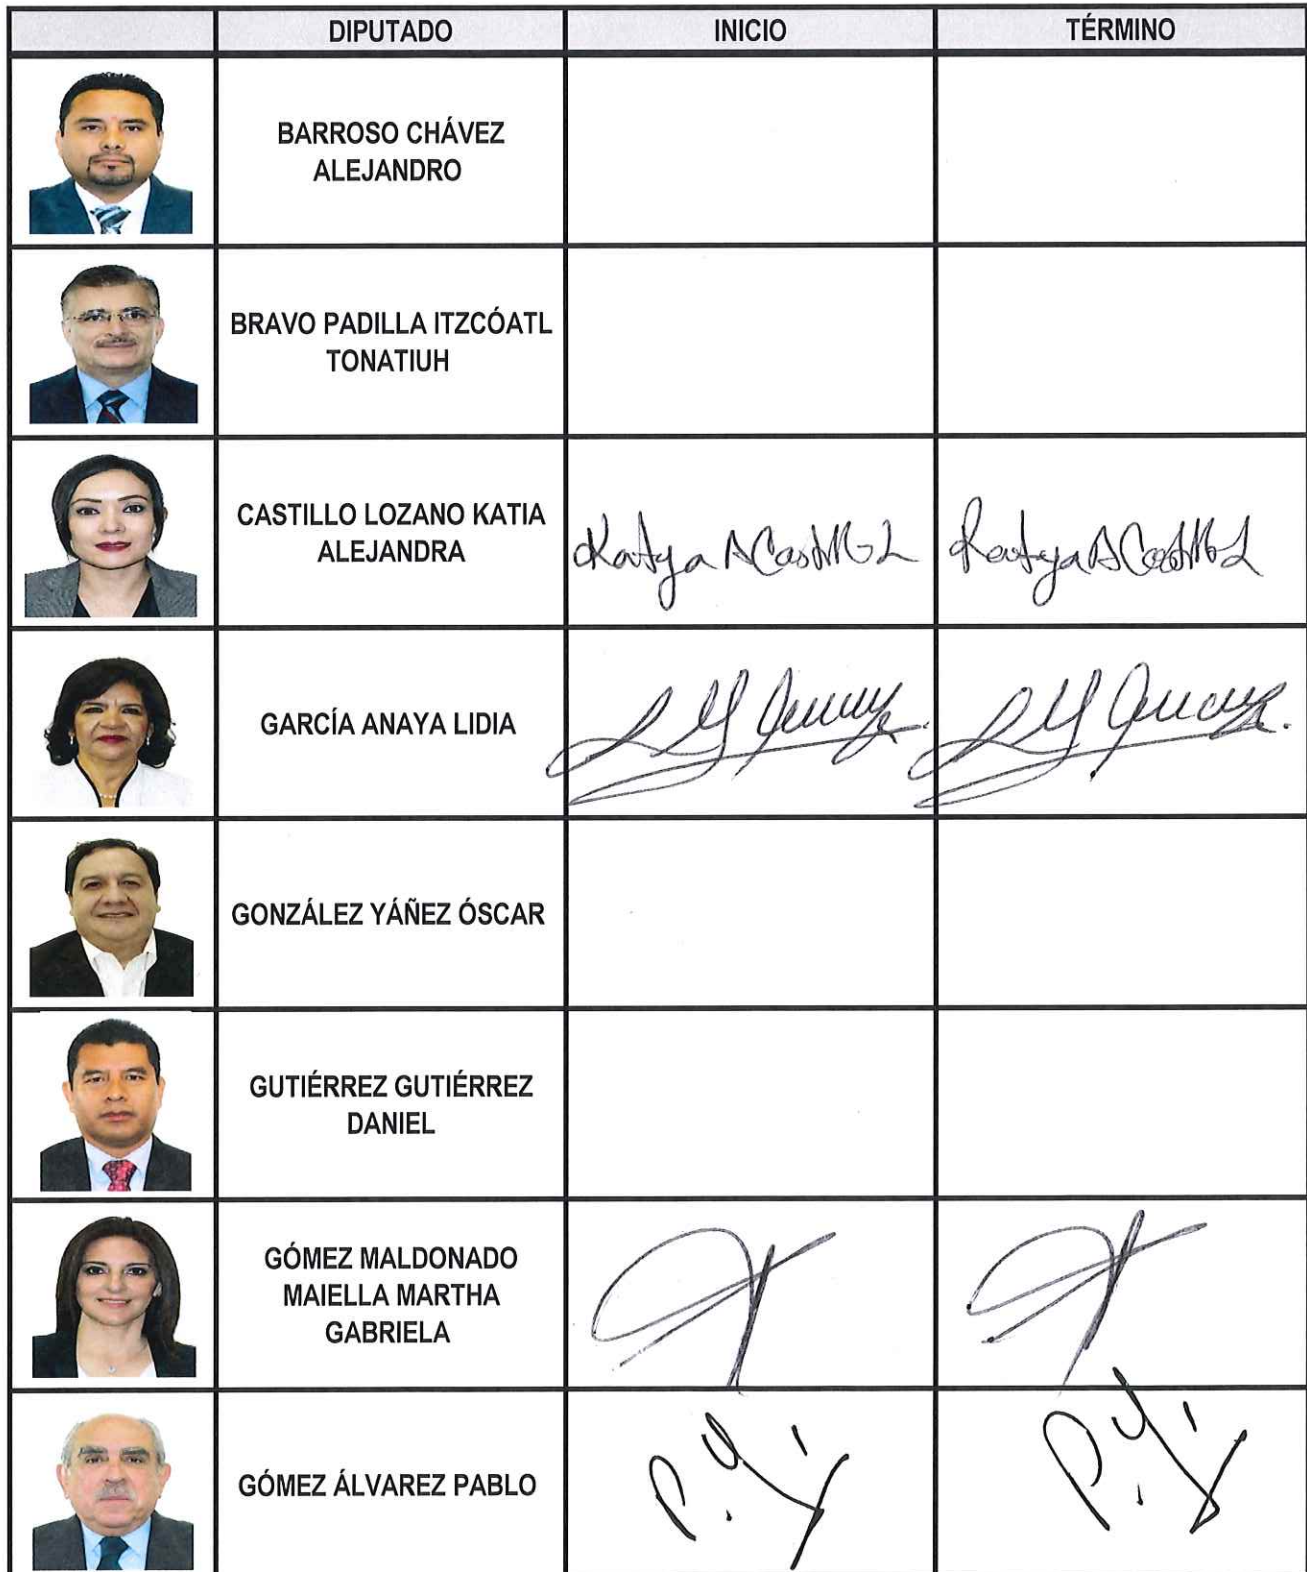 DIPUTADO INICIO TÉRMINO
BARROSO CHÁVEZ
ALEJANDRO
BRAVO PADILLA ITZCÓATL
TONATIUH
CASTILLO LOZANO KATIA
ALEJANDRA
Katya A Castillo L Katya A Castillo L
GARCÍA ANAYA LIDIA
GONZÁLEZ YÁÑEZ ÓSCAR
GUTIÉRREZ GUTIÉRREZ
DANIEL
GÓMEZ MALDONADO
MAIELLA MARTHA
GABRIELA
GÓMEZ ÁLVAREZ PABLO